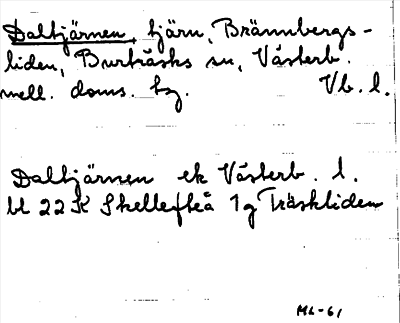 Daltjärnen, tjärn, Brännbergs-
liden, Burträsks sn, Västerb.
mell. doms. tg. Vb. l.
Daltjärnen ek Västerb. l.
bl 22K Skellefteå 1g Träskliden
ML-61